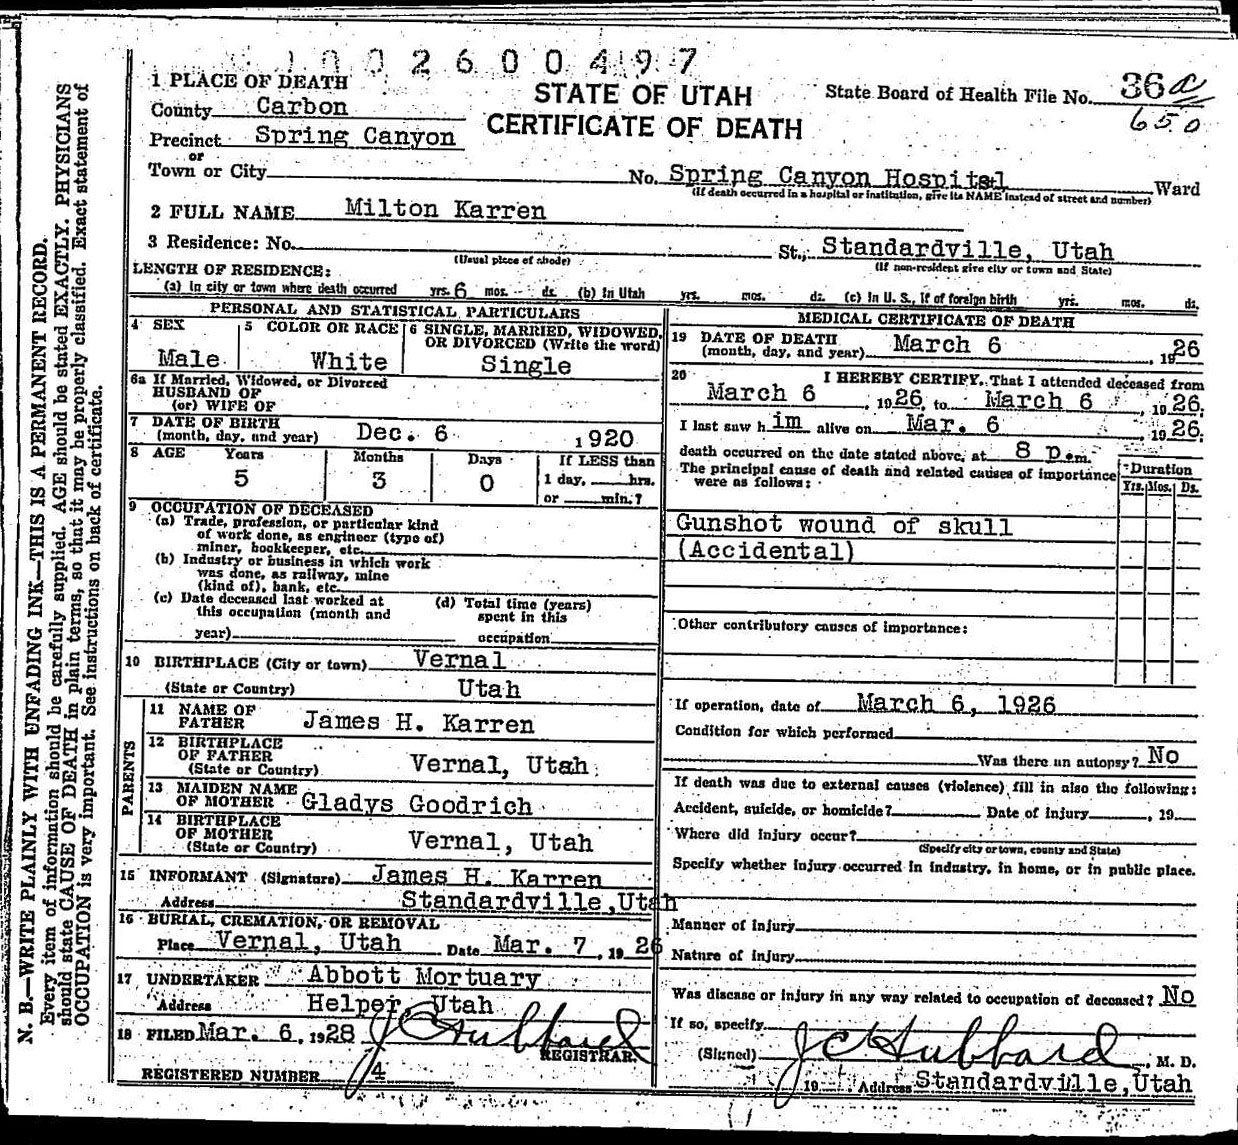 002600497
1 PLACE OF DEATH
STATE OF UTAH
CERTIFICATE OF DEATH
State Board of Health File No. 36 a
650
County Carbon
Precinct Spring Canyon
or
Town or City
No. Spring Canyon Hospital Ward
(If death occurred in a hospital or institution, give its NAME instead of street and number)
2 FULL NAME Milton Karren
3 Residence: No. St., Standardville, Utah
(Usual place of abode) (If non-resident give city or town and State)
LENGTH OF RESIDENCE:
(a) In city or town where death occurred yrs. 6 mos. ds. (b) In Utah yrs. mos. ds. (c) In U. S., if of foreign birth yrs. mos. ds.
PERSONAL AND STATISTICAL PARTICULARS
4 SEX
Male
5 COLOR OR RACE
White
6 SINGLE, MARRIED, WIDOWED,
OR DIVORCED (Write the word)
Single
6a If Married, Widowed, or Divorced
HUSBAND OF
(or) WIFE OF
7 DATE OF BIRTH
(month, day, and year) Dec. 6 1920
8 AGE Years Months Days If LESS than
5 3 0 1 day, hrs.
or min.?
9 OCCUPATION OF DECEASED
(a) Trade, profession, or particular kind
of work done, as engineer (type of)
miner, bookkeeper, etc.
(b) Industry or business in which work
was done, as railway, mine
(kind of), bank, etc.
(c) Date deceased last worked at
this occupation (month and
year)
(d) Total time (years)
spent in this
occupation
10 BIRTHPLACE (City or town) Vernal
(State or Country) Utah
PARENTS
11 NAME OF
FATHER James H. Karren
12 BIRTHPLACE
OF FATHER
(State or Country) Vernal, Utah
13 MAIDEN NAME
OF MOTHER Gladys Goodrich
14 BIRTHPLACE
OF MOTHER
(State or Country) Vernal, Utah
15 INFORMANT (Signature) James H. Karren
Address Standardville, Utah
16 BURIAL, CREMATION, OR REMOVAL
Place Vernal, Utah Date Mar. 7, 1926
17 UNDERTAKER Abbott Mortuary
Address Helper, Utah
18 FILED Mar. 6, 1928 J C Hubbard
REGISTRAR.
REGISTERED NUMBER 4
MEDICAL CERTIFICATE OF DEATH
19 DATE OF DEATH
(month, day, and year) March 6, 1926
20 I HEREBY CERTIFY, That I attended deceased from
March 6, 1926, to March 6, 1926;
I last saw him alive on Mar. 6, 1926;
death occurred on the date stated above, at 8 p.m.
The principal cause of death and related causes of importance
were as follows:
Duration
Yrs. Mos. Ds.
Gunshot wound of skull
(Accidental)
Other contributory causes of importance:
If operation, date of March 6, 1926
Condition for which performed
Was there an autopsy? No
If death was due to external causes (violence) fill in also the following:
Accident, suicide, or homicide? Date of injury, 19
Where did injury occur?
(Specify city or town, county and State)
Specify whether injury occurred in industry, in home, or in public place.
Manner of injury
Nature of injury
Was disease or injury in any way related to occupation of deceased? No
If so, specify
(Signed) J C Hubbard, M. D.
19 Address Standardville, Utah
N. B.—WRITE PLAINLY WITH UNFADING INK—THIS IS A PERMANENT RECORD.
Every item of information should be carefully supplied. AGE should be stated EXACTLY. PHYSICIANS
should state CAUSE OF DEATH in plain terms, so that it may be properly classified. Exact statement of
OCCUPATION is very important. See instructions on back of certificate.